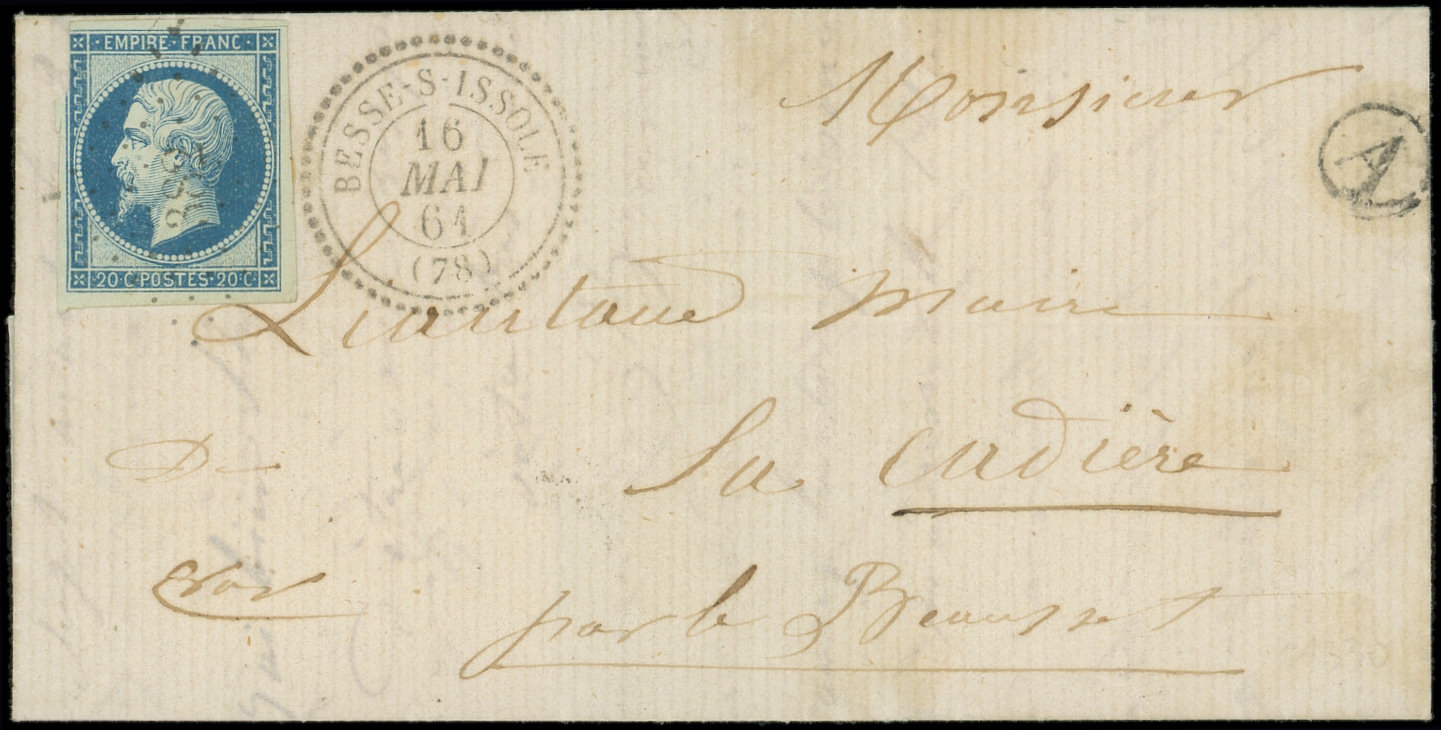 EMPIRE·FRANC·
20·C·POSTES·20·C·
BESSE-S-ISSOLE
16
MAI
61
(78)
A
Monsieur
maire
De La Cadière
Var par le Beausset